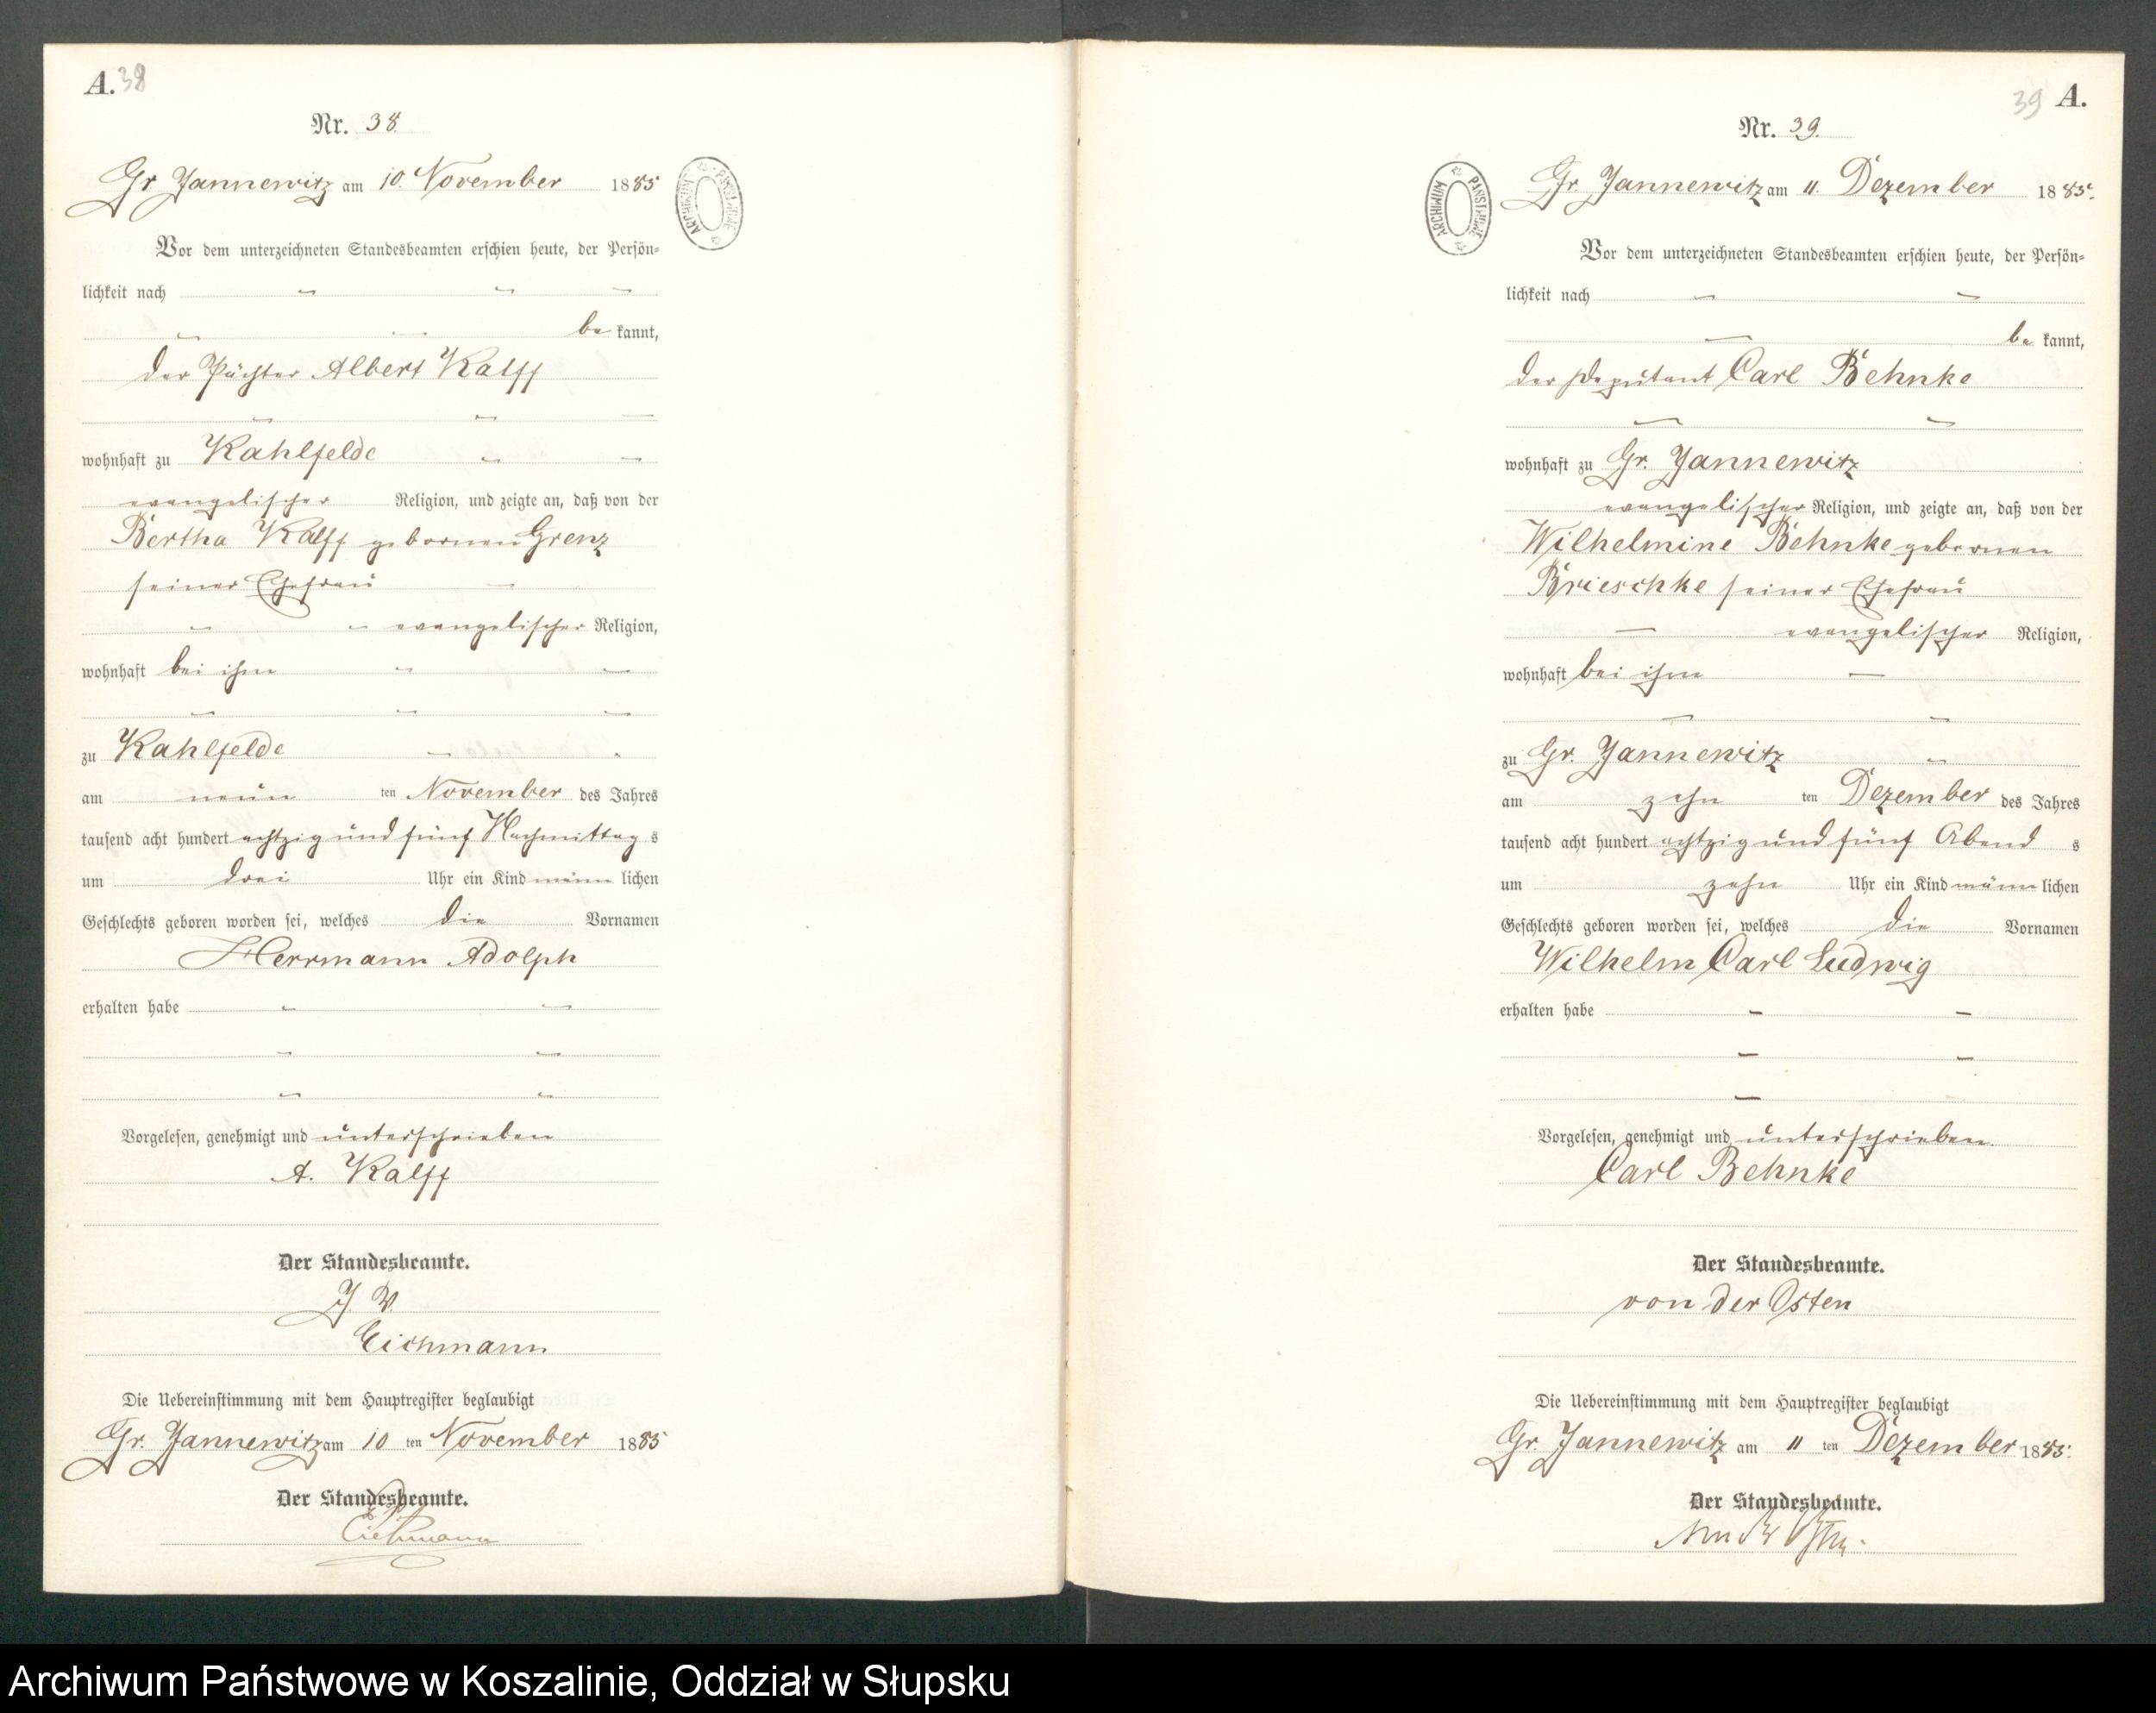 A. 38
Nr. 38.
Gr Jannewitz am 10. November 1885
Vor dem unterzeichneten Standesbeamten erschien heute, der Persön-
lichkeit nach
be kannt,
der Pächter Albert Kalff
wohnhaft zu Kahlfelde
evangelischer Religion, und zeigte an, daß von der
Bertha Kalff gebornen Grenz
seiner Ehefrau
evangelischer Religion,
wohnhaft bei ihm
zu Kahlfelde
am neun ten November des Jahres
tausend acht hundert achtzig und fünf Nachmittag s
um drei Uhr ein Kind männ lichen
Geschlechts geboren worden sei, welches die Vornamen
Herrmann Adolph
erhalten habe
Vorgelesen, genehmigt und unterschrieben
A. Kalff
Der Standesbeamte.
J. V.
Eichmann
Die Uebereinstimmung mit dem Hauptregister beglaubigt
Gr. Jannewitz am 10 ten November 1885
Der Standesbeamte.
Eichmann
39 A.
Nr. 39.
Gr. Jannewitz am 11. Dezember 1885.
Vor dem unterzeichneten Standesbeamten erschien heute, der Persön-
lichkeit nach
be kannt,
der Deputant Carl Behnke
wohnhaft zu Gr. Jannewitz
evangelischer Religion, und zeigte an, daß von der
Wilhelmine Behnke gebornen
Brieschke seiner Ehefrau
evangelischer Religion,
wohnhaft bei ihm
zu Gr. Jannewitz
am zehn ten Dezember des Jahres
tausend acht hundert achtzig und fünf Abend s
um zehn Uhr ein Kind männ lichen
Geschlechts geboren worden sei, welches die Vornamen
Wilhelm Carl Ludwig
erhalten habe
Vorgelesen, genehmigt und unterschrieben.
Carl Behnke
Der Standesbeamte.
von der Osten
Die Uebereinstimmung mit dem Hauptregister beglaubigt
Gr. Jannewitz am 11 ten Dezember 1885.
Der Standesbeamte.
von der Osten.
ARCHIWUM PAŃSTWOWE
ARCHIWUM PAŃSTWOWE
Archiwum Państwowe w Koszalinie, Oddział w Słupsku